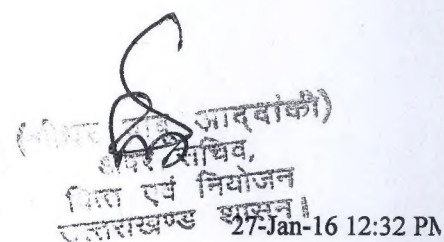 (श्रीधर बाबू आद्दांकी)
अपर सचिव,
वित्त एवं नियोजन
उत्तराखण्ड शासन।
27-Jan-16 12:32 PM